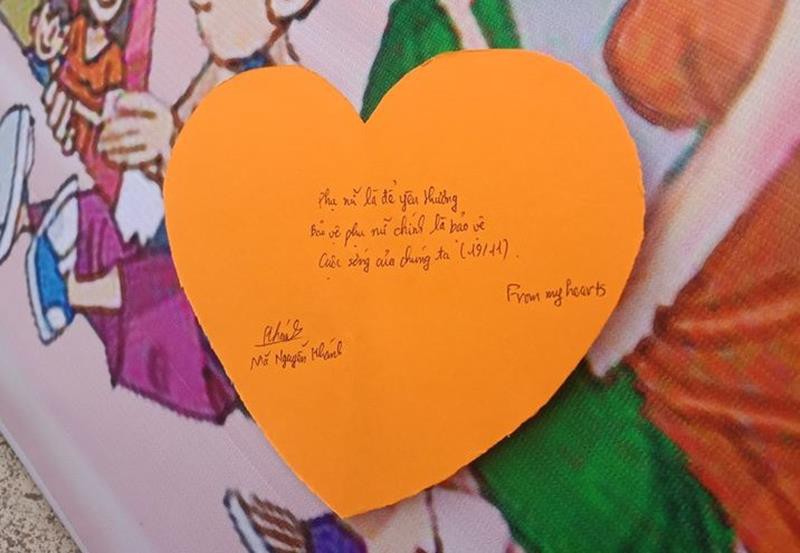 Phụ nữ là để yêu thương
Bảo vệ phụ nữ chính là bảo vệ
Cuộc sống của chúng ta (19/11).
From my hearts
Khánh
Mã Nguyễn Khánh